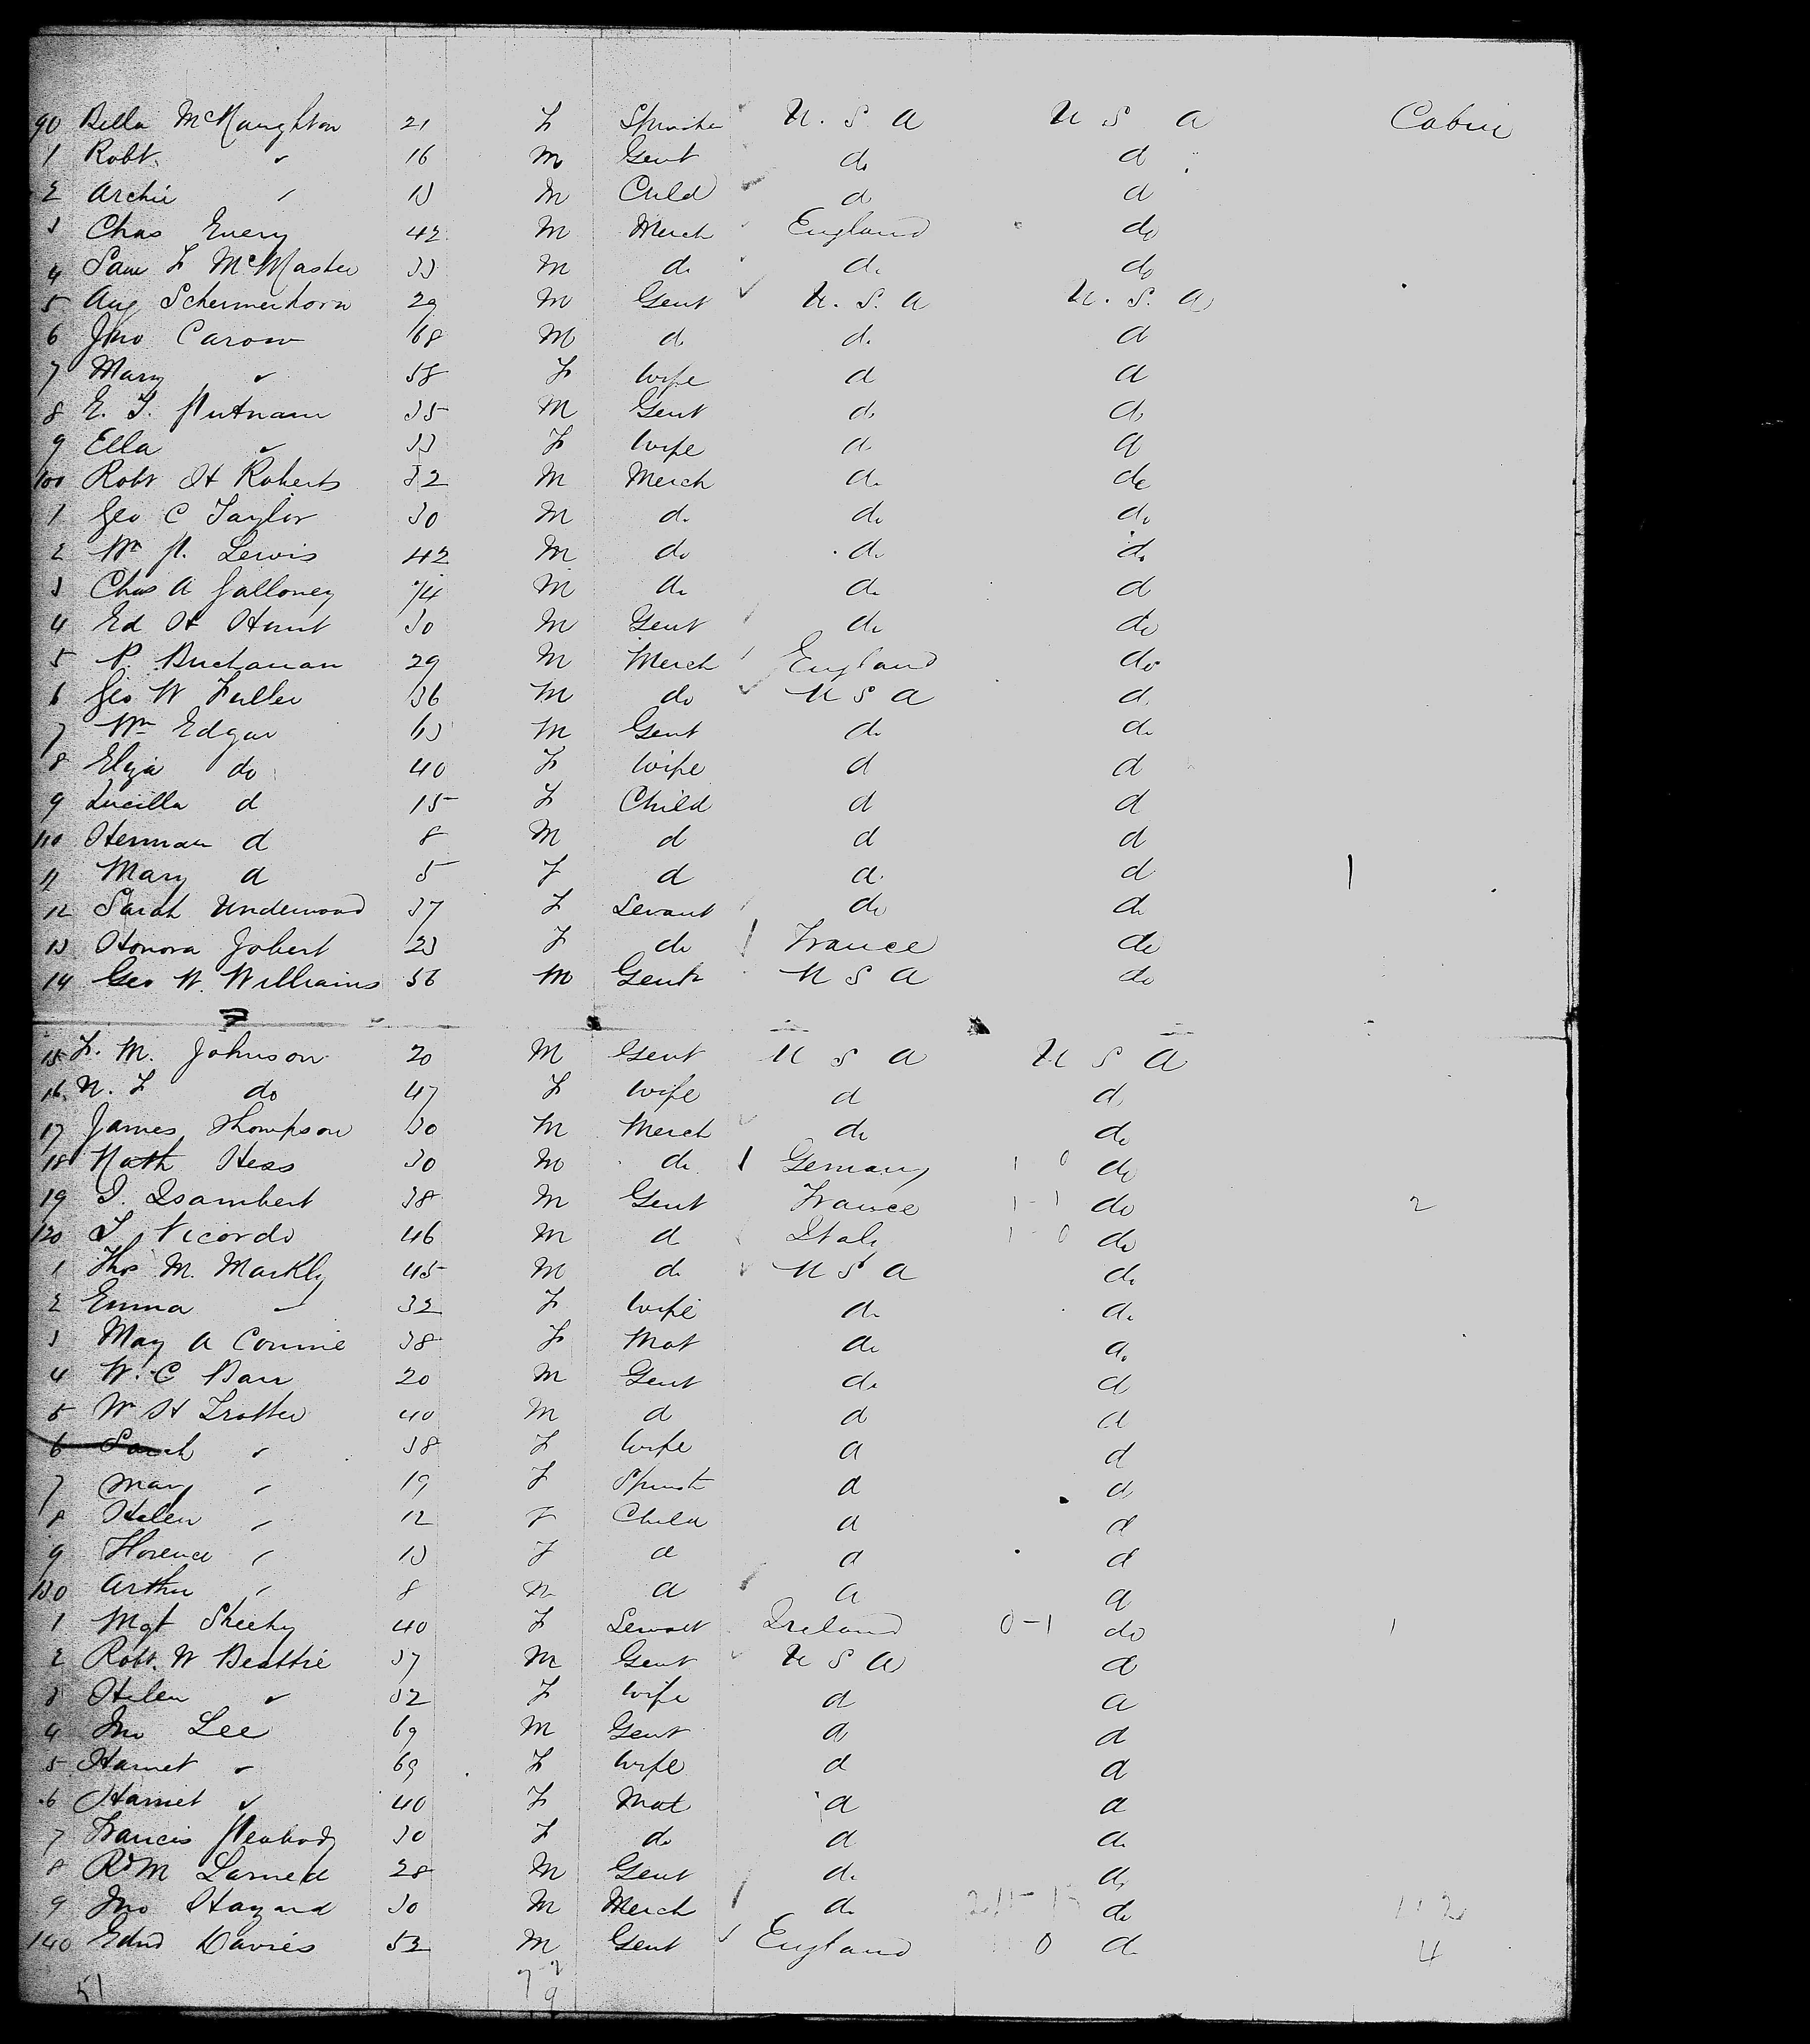 90 Bella McNaughton 21 F Spinster U. S. A U S A Cabin
1 Robt " 16 M Gent do d
2 Archie " 13 M Child d d
3 Chas Every 42 M Merch England do
4 Sam F McMaster 33 M d d do
5 Aug Schermerhorn 29 M Gent U. S. A U. S. A
6 Jno Carow 68 M d d d
7 Mary " 58 F Wife d d
8 E. T. Putnam 35 M Gent d d
9 Ella " 33 F Wife d d
100 Robt H Roberts 32 M Merch do do
1 Geo C Taylor 30 M do do do
2 Wm P. Lewis 42 M do do do
3 Chas A Jalloney 74 M do do d
4 Ed H Hunt 30 M Gent do do
5 P. Buchanan 29 M Merch England do
6 Geo W Fuller 36 M do U S A d
7 Wm Edgar 63 M Gent d d
8 Eliza do 40 F Wife d d
9 Lucilla d 15 F Child d d
110 Herman d 8 M d d d
11 Mary d 5 F d d d
12 Sarah Underwood 37 F Servant do do
13 Honora Jobert 23 F do France do
14 Geo W. Williams 56 M Gent U S A do
15 F. M. Johnson 20 M Gent U S A U S A
16 N. F do 47 F Wife d d
17 James Thompson 30 M Merch do do
18 Nath Hess 30 M do Germany 1 0 do
19 I. Isambert 38 M Gent France 1-1 do 2
120 L Vicordo 46 M d Italy 1-0 do
1 Thos M. Markly 45 M d U S A do
2 Emma " 32 F Wife do do
3 May A Conme 38 F Mat do d
4 W. C Barr 20 M Gent do d
5 Wm H Trotter 40 M d d d
6 Sarah " 38 F Wife d d
7 Mary " 19 F Spinst d d
8 Helen " 12 F Child d d
9 Florence " 13 F d d d
130 Arthur " 8 M d d d
1 Mgt Sheehy 40 F Servant Ireland 0-1 do 1
2 Robt. W Beattie 37 M Gent U S A d
3 Helen " 32 F Wife d d
4 Jno Lee 69 M Gent d d
5 Harriet " 69 F Wife d d
6 Harriet " 40 F Mat d d
7 Francis Peabody 30 F do d d
8 R M Larned 28 M Gent d d
9 Jno Hazard 30 M Merch d do
140 Edwd Davies 52 M Gent England 0 d 4
51